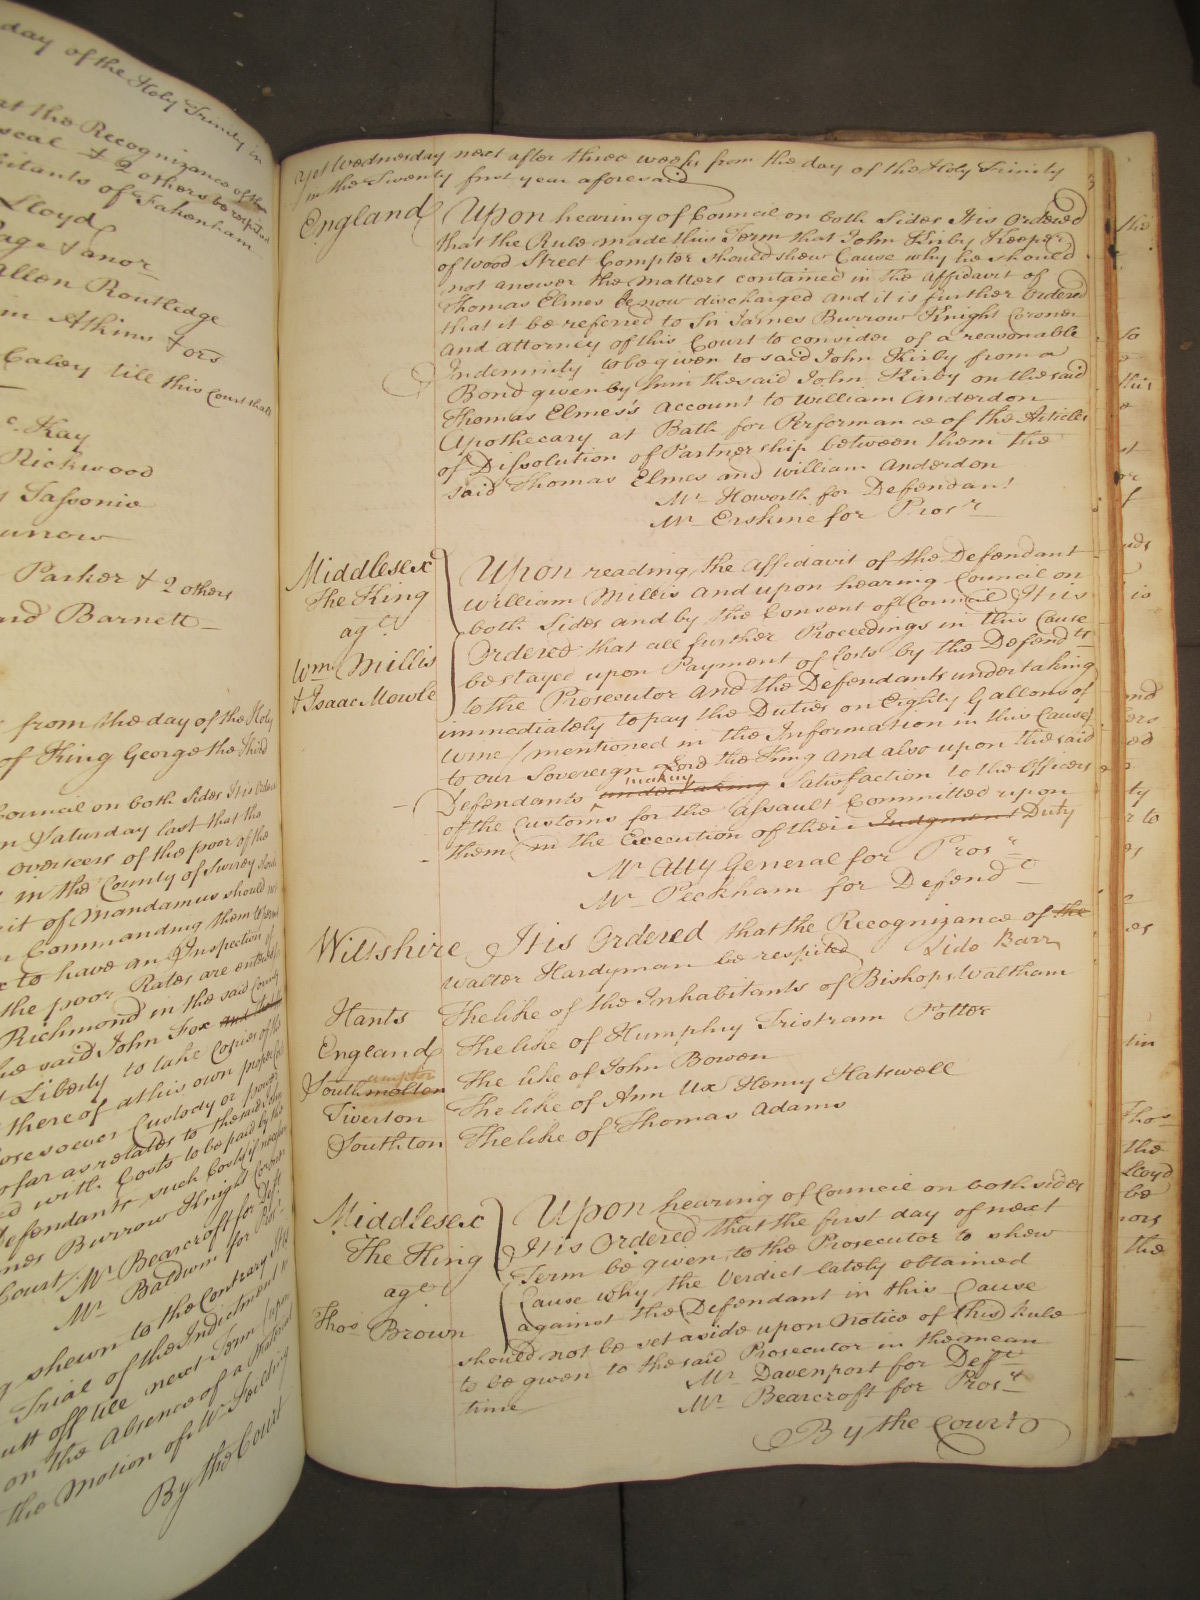 day of the Holy Trinity in
at the Recognizance of the
seal & 2 others be respited
bitants of Fakenham
Lloyd
Page & anor
Allen Routledge
m Atkins & ors
Caley till this Court shall
Kay
Rickwood
Sassonie
unow
Parker & 2 others
ard Barnett
from the day of the Holy
of King George the Third
Council on both Sides It is Ordered
n Saturday last that the
overseers of the poor of the
in the County of Surrey should
it of Mandamus should not
Commanding them to permit
x to have an Inspection of
the poor Rates are entered
Richmond in the said County
he said John Fox
Liberty to take Copies of the
thereof at his own proper Costs
soever Custody or power
so far as relates to the said John
d with Costs to be paid by the
Defendants such Costs if necessary
mes Burrow Knight Coroner
Court Mr Bearcroft for Deft
Mr Baldwin for Prosr
g shewn to the Contrary It is
Trial of the Indictment in
utt off till next Term upon
on the Absence of a Material
the Motion of Mr
By the Court
Yet Wednesday next after three weeks from the day of the Holy Trinity
in the Twenty first year aforesaid
England Upon hearing of Council on both Sides It is Ordered
that the Rule made this Term that John Kirby Keeper
of Wood Street Compter should shew Cause why he should
not answer the Matters contained in the Affidavit of
Thomas Elmes be now discharged and it is further Ordered
that it be referred to Sir James Burrow Knight Coroner
and Attorney of this Court to consider of a reasonable
Indemnity to be given to said John Kirby from a
Bond given by him the said John Kirby on the said
Thomas Elmes's Account to William Anderdon
Apothecary at Bath for Performance of the Articles
of Dissolution of Partnership between them the
said Thomas Elmes and William Anderdon
Mr Howorth for Defendant
Mr Erskine for Prosr
Middlesex Upon reading the Affidavit of the Defendant
The King William Millis and upon hearing Council on
agt both Sides and by the Consent of Council It is
Wm Millis Ordered that all further Proceedings in this Cause
& Isaac Mowle be stayed upon Payment of Costs by the Defendts
to the Prosecutor and the Defendants undertaking
immediately to pay the Duties on Eighty Gallons of
Wine (mentioned in the Information in this Cause)
to our Sovereign Lord the King and also upon the said
Defendants undertaking making Satisfaction to the Officers
of the Customs for the Assault Committed upon
them in the Execution of their Judgment Duty
Mr Atty General for Prosr
Mr Peckham for Defendt
Wiltshire It is Ordered that the Recognizance of the
Walter Hardyman be respited Lido Barr
Hants The like of the Inhabitants of Bishops Waltham
England The like of Humphry Tristram Potter
Southmolton ampton The like of John Bowen
Tiverton The like of Ann Ux Henry Hakwell
Southton The like of Thomas Adams
Middlesex Upon hearing of Council on both sides
The King It is Ordered that the first day of next
agt Term be given to the Prosecutor to shew
Cause why the Verdict lately obtained
Thos Brown against the Defendant in this Cause
should not be set aside upon Notice of this Rule
to be given to the said Prosecutor in the mean
time Mr Davenport for Deft
Mr Bearcroft for Prosr
By the Court
the
so
this
or
of
uds
is
nd
ers
ed
ty
r to
es
es
tin
Thos
the
Lloyd
be
nors
the